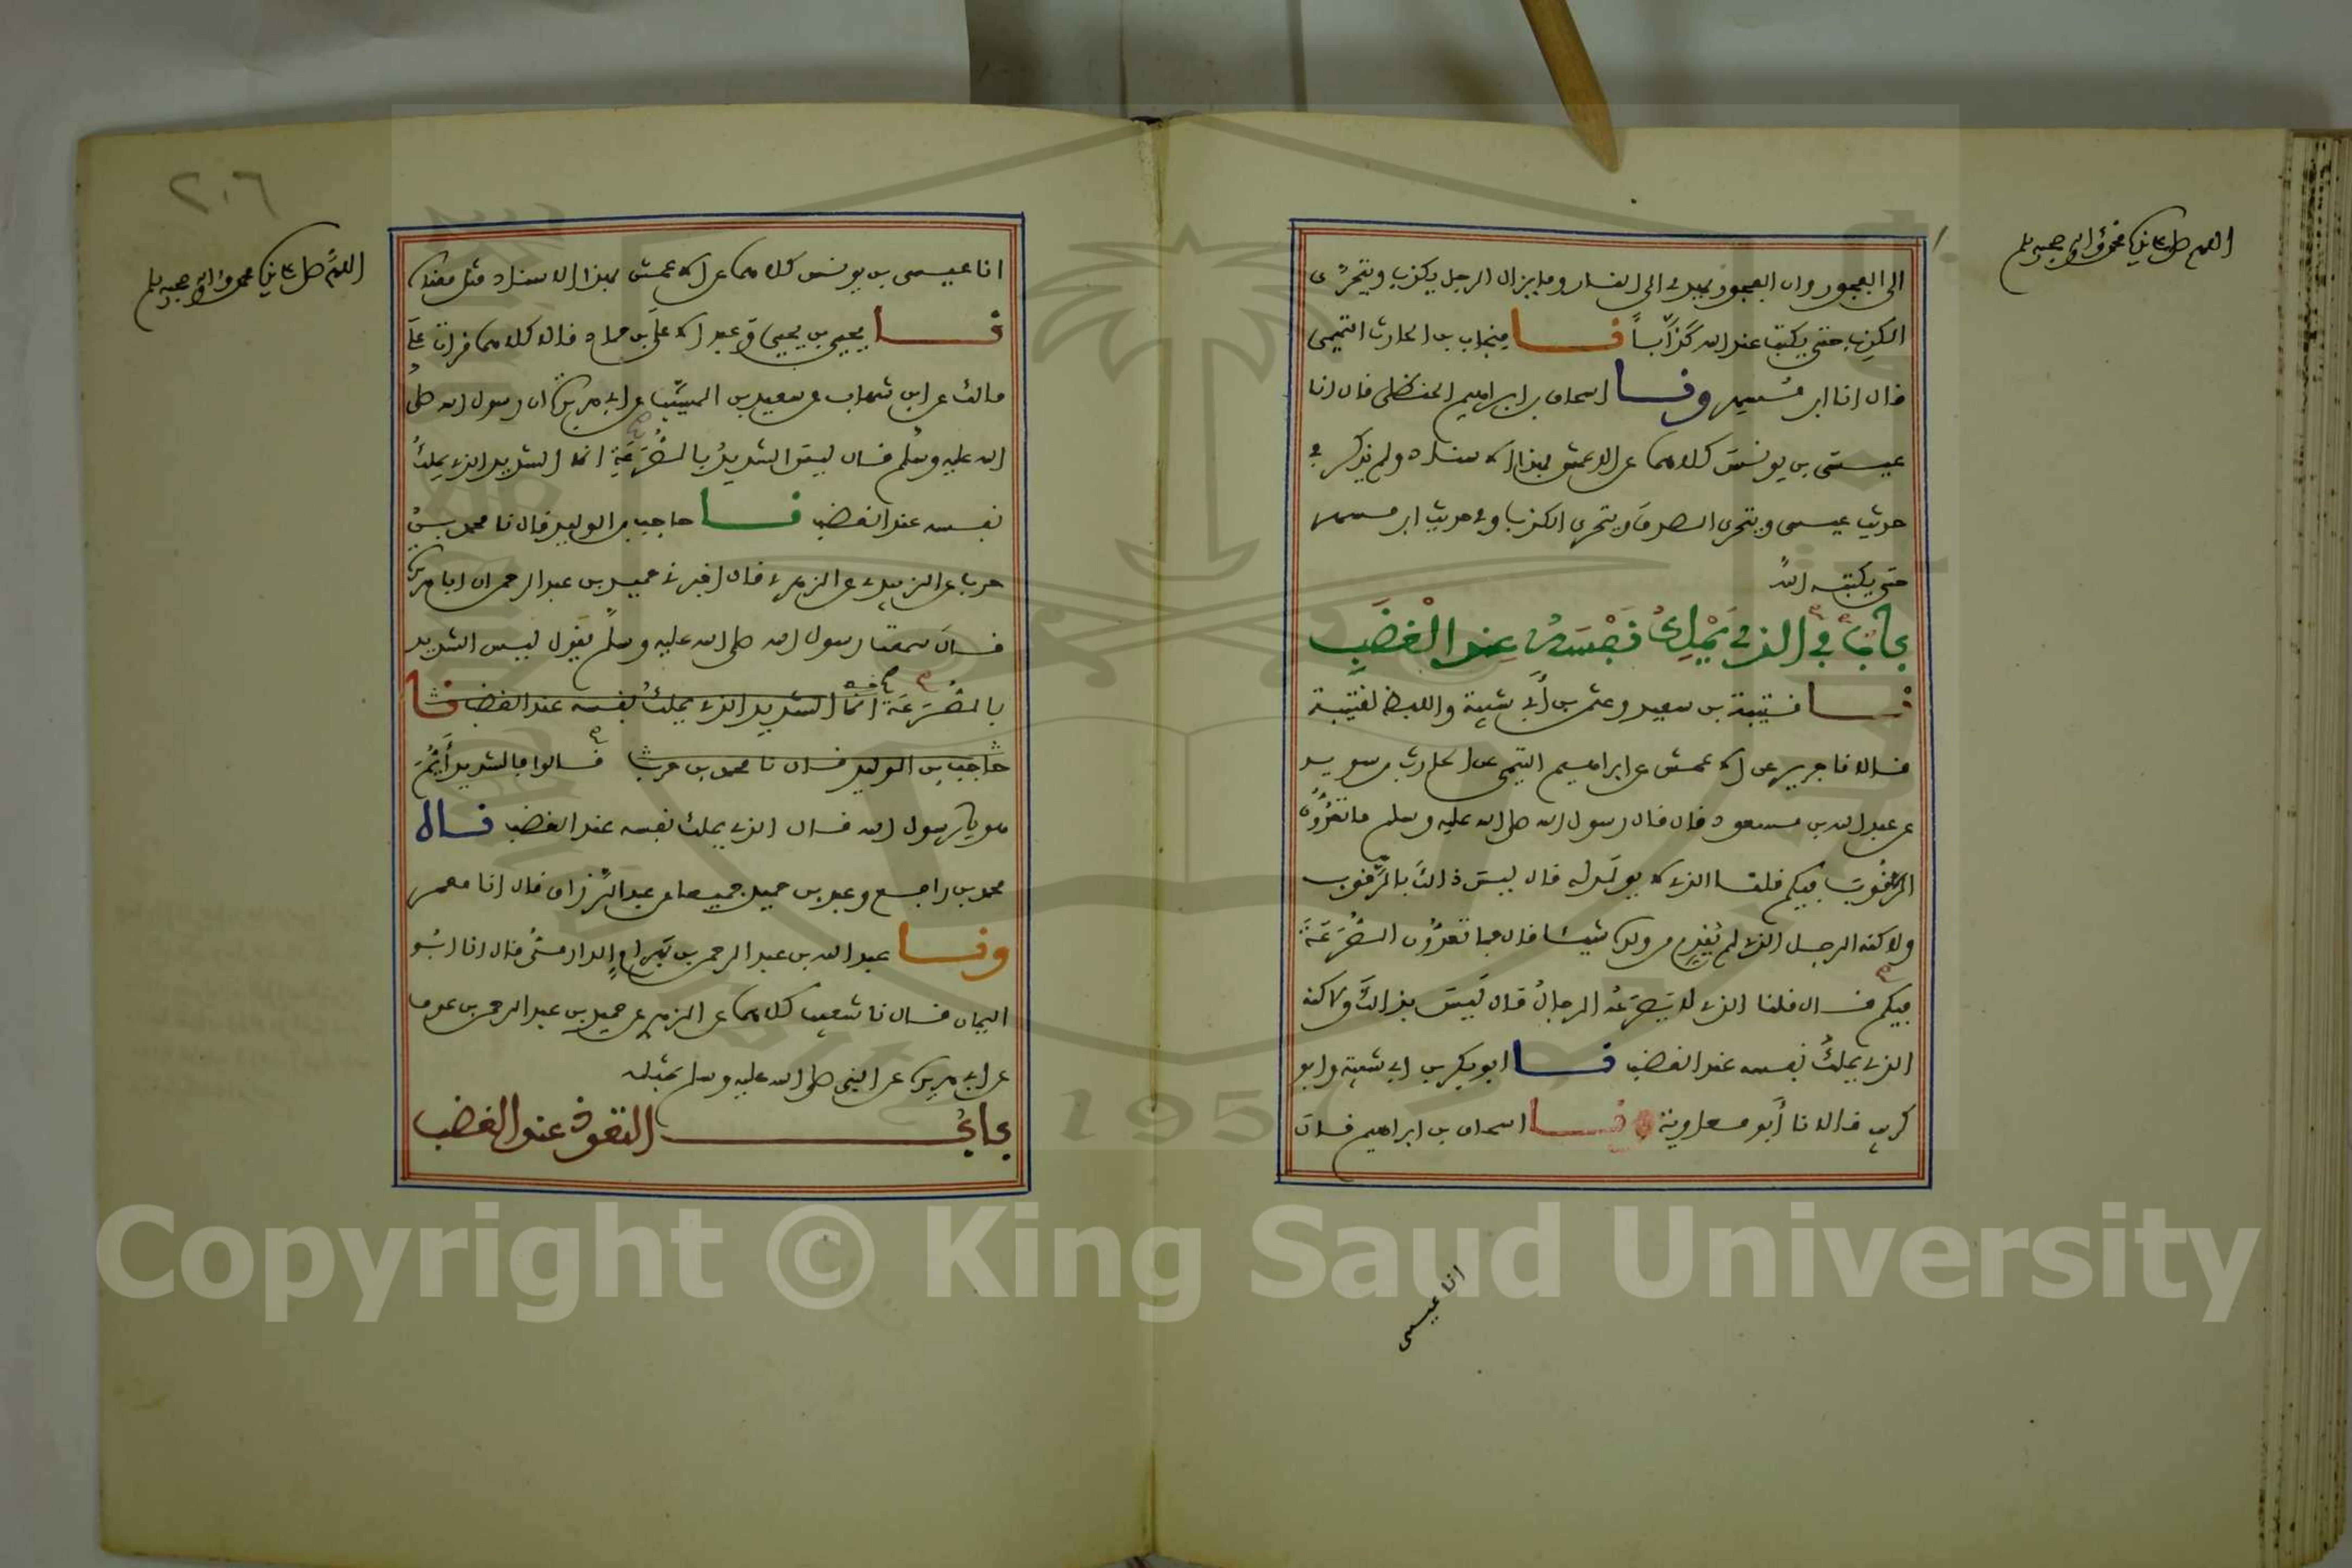 اللهم صل على نبينا محمد وءاله وصحبه وسلم
الى الفجور وان الفجور يهدى الى النار وما يزال الرجل يكذب ويتحرّى
الكذب حتى يكتب عند الله كَذَّاباً نا منجاب بن الحارث التميمى
قال انا ابن مُسهر ونا اسحاق بن ابراهيم الحنظلى قال انا
عيسَى بن يونسَ كلاهما عن الاعمش بهذا الاسناد ولم يذكر فى
حديث عيسى ويتحرى الصدق ويتحرى الكذب وفى حديث ابن مسهر
حتى يكتبه الله
بابٌ فى الذى يَمْلِكُ نَفْسَهُ عِند الْغَضَبِ
نا قتيبة بن سعيد وعثمن بن أبى شيبة واللفظ لقتيبة
قالا نا جرير عن الاعمش عن ابراهيم التيمى عن الحارث بن سويد
عن عبد الله بن مسعود قال قال رسول الله صلى الله عليه وسلم ما تعُدُّون
الرَّقُوبَ فيكم قلنا الذى لا يولَد له قال ليسَ ذالكَ بالرَّقوب
ولاكنه الرجل الذى لم يُقدِم من ولده شيئا قال فما تعدُّون الصُّرَعَةَ
فيكم قال قلنا الذى لا يَصرَعُه الرجالُ قال لَيسَ بذالكَ ولاكنه
الذى يملكُ نفسه عند الغضب نا ابو بكر بن ابى شيبة وابو
كريب قالا نا أبو معاوية ونا اسحاق بن ابراهيم قال
انا عيسى
٢٠٦
اللهم صل على نبينا محمد وءاله وصحبه وسلم
انا عيسى بن يونس كلاهما عن الاعمش بهذا الاسناد مثل معناه
نا يحيى بن يحيى وعبد الاعلَى بن حماد قالا كلاهما قرات على
مالك عن ابن شهاب عن سعيد بن المسيَّب عن ابى هريرة ان رسول الله صلى
الله عليه وسلم قال ليسَ الشديدُ بالصُّرَعَةِ انما الشديد الذى يملِكُ
نفسه عند الغضب نا حاجب بن الوليد قال نا محمد بن
حرب عن الزبيدى عن الزهرى قال اخبرنى حميد بن عبد الرحمن ان ابا هريرة
قال سمعت رسول الله صلى الله عليه وسلم يقول ليس الشديد
بالصُّرَعَة انما الشديد الذى يملكُ نفسه عند الغضب نا
حاجب بن الوليد قال نا محمد بن حرب قالوا فالشديد أَيُّمَ
هو يا رسول الله قال الذى يملك نفسه عند الغضب قال
محمد بن رافع وعبد بن حميد جميعا عن عبد الرَّزاق قال انا معمر
ونا عبد الله بن عبد الرحمن بن بَهرام الدارمىُّ قال انا ابُو
اليمان قال نا شعيب كلاهما عن الزهرى عن حميد بن عبد الرحمن بن عوف
عن ابى هريرة عن النبى صلى الله عليه وسلم بمثله
بابُ التعوذ عند الغضب
Copyright © King Saud University
195